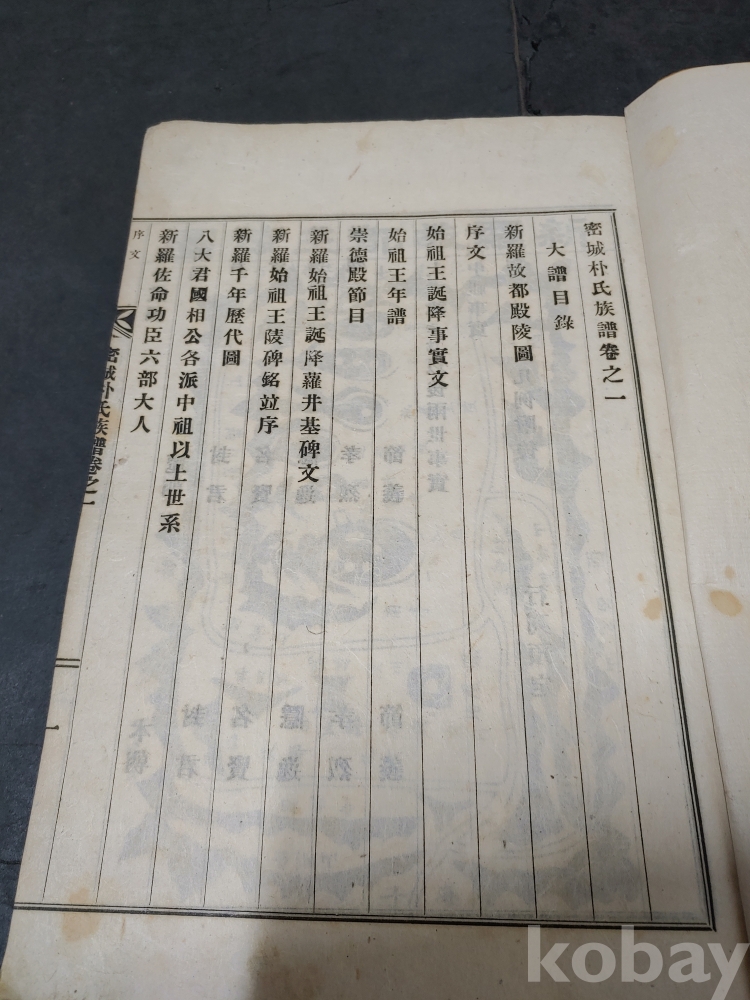 密城朴氏族譜卷之一
大譜目錄
新羅故都殿陵圖
序文
始祖王誕降事實文
始祖王年譜
崇德殿節目
新羅始祖王誕降蘿井基碑文
新羅始祖王陵碑銘竝序
新羅千年歷代圖
八大君國相公各派中祖以上世系
新羅佐命功臣六部大人
序文
密城朴氏族譜卷之一
一
kobay